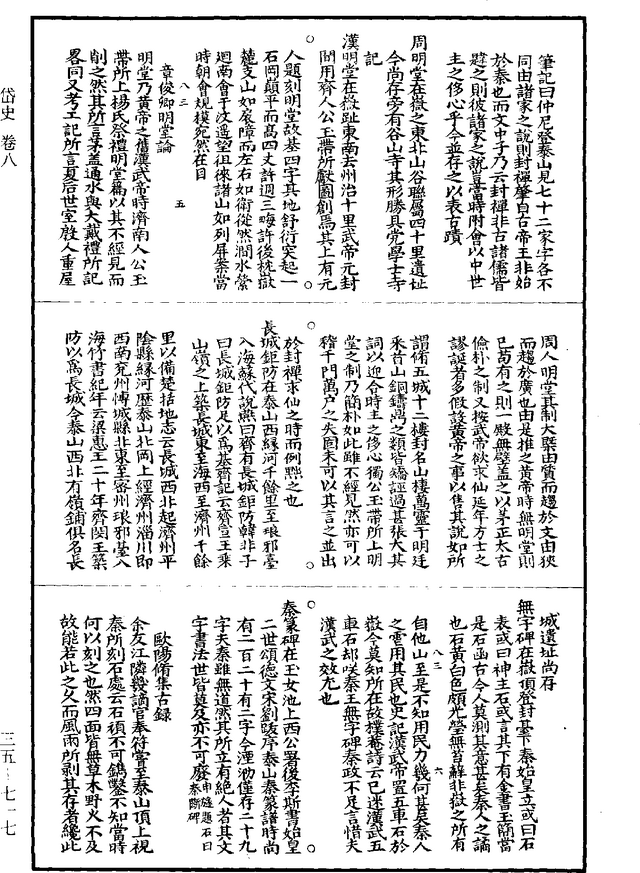 岱史 卷八
筆記曰仲尼登泰山見七十二家字各不
同由諸家之說則封禪肇自古帝王非始
於秦也而文中子乃云封禪非古諸儒皆
韙之則彼諸家之說豈當時附會以中世
主之侈心乎今並存之以表古蹟
周明堂在嶽之東北山谷聯屬四十里遺址
今尚存旁有谷山寺其形勝具党學士寺
記
漢明堂在嶽趾東南去州治十里武帝元封
間用齊人公玉帶所獻圖創焉其上有元
人題刻明堂故基四字其地舒衍突起一
石岡顚平而高四丈許週三畮許後枕嶽
麓支山如扆障而左右如衛從然澗水縈
迴南會于汶遙望徂徠諸山如列屏案當
時朝會規模宛然在目
八三 五
章俊卿明堂論
明堂乃黃帝之舊漢武帝時濟南人公玉
帶所上揚氏祭禮明堂篇以其不經見而
削之然其所言茅盖通水與大戴禮所記
畧同又考工記所言夏后世室殷人重屋
周人明堂其制大槩由質而趨於文由狹
而趨於廣也由是推之黃帝時無明堂則
已苟有之則一殿無壁盖之以茅正太古
儉朴之制又按武帝欲求仙延年方士之
謬誕者多假設黃帝之事以售其說如所
謂脩五城十二樓封名山棲萬靈于明廷
采首山銅鑄鼎之類皆矯誣過甚張大其
詞以迎合時主之侈心獨公玉帶所上明
堂之制乃簡朴如此雖不經見然亦可以
稽千門萬戶之失固未可以其言之並出
於封禪求仙之時而例黜之也
長城鉅防在泰山西緣河千餘里至琅邪臺
入海蘇代說燕曰齊有長城鉅防韓非子
曰長城鉅防足以爲基齊記云齊宣王乘
山嶺之上築長城東至海西至濟州千餘
里以備楚括地志云長城西北起濟州平
陰縣緣河歷泰山北岡上經濟州淄川即
西南兖州博城縣北東至密州琅邪臺入
海竹書紀年云梁惠王二十年齊閔王築
防以爲長城今泰山西北有嶺鋪俱名長
城遺址尚存
無字碑在嶽頂登封臺下秦始皇立或曰石
表或曰神主石或言其下有金書玉簡當
是石函古今人莫測其意甚矣秦人之譎
也石黃白色頗光瑩無苔蘚非嶽之所有
八三 六
自他山至是不知用民力幾何甚矣秦人
之雩用其民也史記漢武帝置五車石於
嶽今莫知所在故樸菴詩云已迷漢武五
車石却咲秦王無字碑秦政不足言惜夫
漢武之效尤也
秦篆碑在玉女池上西公署後李斯書始皇
二世頌德文宋劉跂序泰山秦篆譜時尚
有二百二十有二字今湮泐僅存二十九
字夫秦雖無道然其所立有絕人者其文
字書法世皆莫及亦不可廢申縫題石曰
秦斷碑
歐陽脩集古録
余友江隣幾謫官奉符嘗至泰山頂上視
秦所刻石處云石頑不可鐫鑿不知當時
何以刻之也然四面皆無草木野火不及
故能若此之久而風雨所剥其存者纔此
三五——七一七